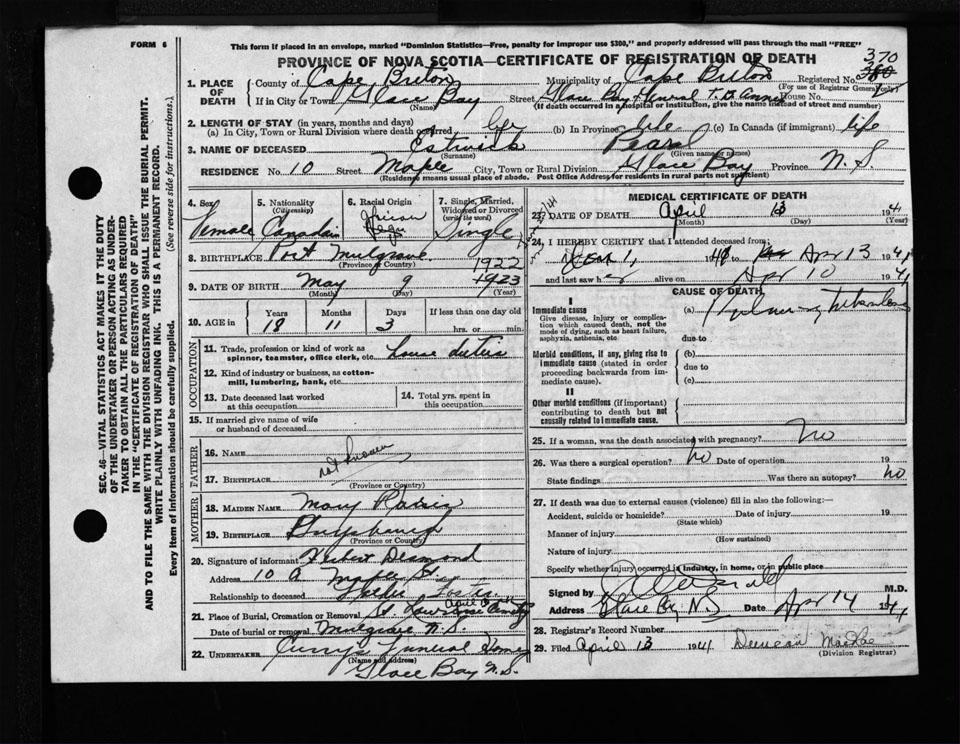 FORM 6
This form if placed in an envelope, marked "Dominion Statistics—Free, penalty for improper use $300," and properly addressed will pass through the mail "FREE"
PROVINCE OF NOVA SCOTIA—CERTIFICATE OF REGISTRATION OF DEATH
370
1. PLACE OF DEATH
County of Cape Breton Municipality of Cape Breton Registered No. 380
(For use of Registrar General only)
If in City or Town Glace Bay Street Glace Bay General House No.
(Name) (If death occurred in a hospital or institution, give the name instead of street and number)
2. LENGTH OF STAY (in years, months and days)
(a) In City, Town or Rural Division where death occurred life (b) In Province life (c) In Canada (if immigrant) life
3. NAME OF DECEASED Estwick Pearl
(Surname) (Given name or names)
RESIDENCE No. 10 Street Maple City, Town or Rural Division Glace Bay Province N.S.
(Residence means usual place of abode. Post Office Address for residents in rural parts not sufficient)
4. Sex Female
5. Nationality (Citizenship) Canadian
6. Racial Origin African Negro
7. Single, Married, Widowed or Divorced (write the word) Single
8. BIRTHPLACE Port Mulgrave
(Province or Country)
1922
9. DATE OF BIRTH May 9 1923
(Month) (Day) (Year)
10. AGE in Years Months Days If less than one day old
18 11 3 hrs. or min.
OCCUPATION
11. Trade, profession or kind of work as spinner, teamster, office clerk, etc. house duties
12. Kind of industry or business, as cotton-mill, lumbering, bank, etc.
13. Date deceased last worked at this occupation
14. Total yrs. spent in this occupation
15. If married give name of wife or husband of deceased
FATHER
16. NAME
not known
17. BIRTHPLACE
(Province or Country)
MOTHER
18. MAIDEN NAME Mary
19. BIRTHPLACE
(Province or Country)
20. Signature of informant Desmond
Address 10 A Maple St.
Relationship to deceased Foster
21. Place of Burial, Cremation or Removal St. Lawrence Cemetery
Date of burial or removal April Mulgrave N.S.
22. UNDERTAKER Currys Funeral Home
(Name and address)
Glace Bay N.S.
MEDICAL CERTIFICATE OF DEATH
23. DATE OF DEATH April 13 1941
(Month) (Day)
24. I HEREBY CERTIFY that I attended deceased from:
1, to Apr 13 1941
and last saw her alive on Apr 10 1941
CAUSE OF DEATH
I
Immediate cause
Give disease, injury or complication which caused death, not the mode of dying, such as heart failure, asphyxia, asthenia, etc
(a) Pulmonary Tuberculosis
due to
Morbid conditions, if any, giving rise to immediate cause (stated in order proceeding backwards from immediate cause).
(b)
due to
(c)
II
Other morbid conditions (if important) contributing to death but not causally related to immediate cause.
25. If a woman, was the death associated with pregnancy? No
26. Was there a surgical operation? No Date of operation 19
State findings Was there an autopsy? no
27. If death was due to external causes (violence) fill in also the following:—
Accident, suicide or homicide? Date of injury 19
(State which)
Manner of injury
(How sustained)
Nature of injury
Specify whether injury occurred in industry, in home, or in public place
Signed by M.D.
Address Glace Bay, N.S Date Apr 14 1941
28. Registrar's Record Number
29. Filed April 13 1941 Duncan
(Division Registrar)
SEC. 46—VITAL STATISTICS ACT MAKES IT THE DUTY OF THE UNDERTAKER OR PERSON ACTING AS UNDERTAKER TO OBTAIN ALL THE PARTICULARS REQUIRED IN THE "CERTIFICATE OF REGISTRATION OF DEATH" AND TO FILE THE SAME WITH THE DIVISION REGISTRAR WHO SHALL ISSUE THE BURIAL PERMIT.
WRITE PLAINLY WITH UNFADING INK. THIS IS A PERMANENT RECORD.
Every item of information should be carefully supplied. (See reverse side for instructions.)